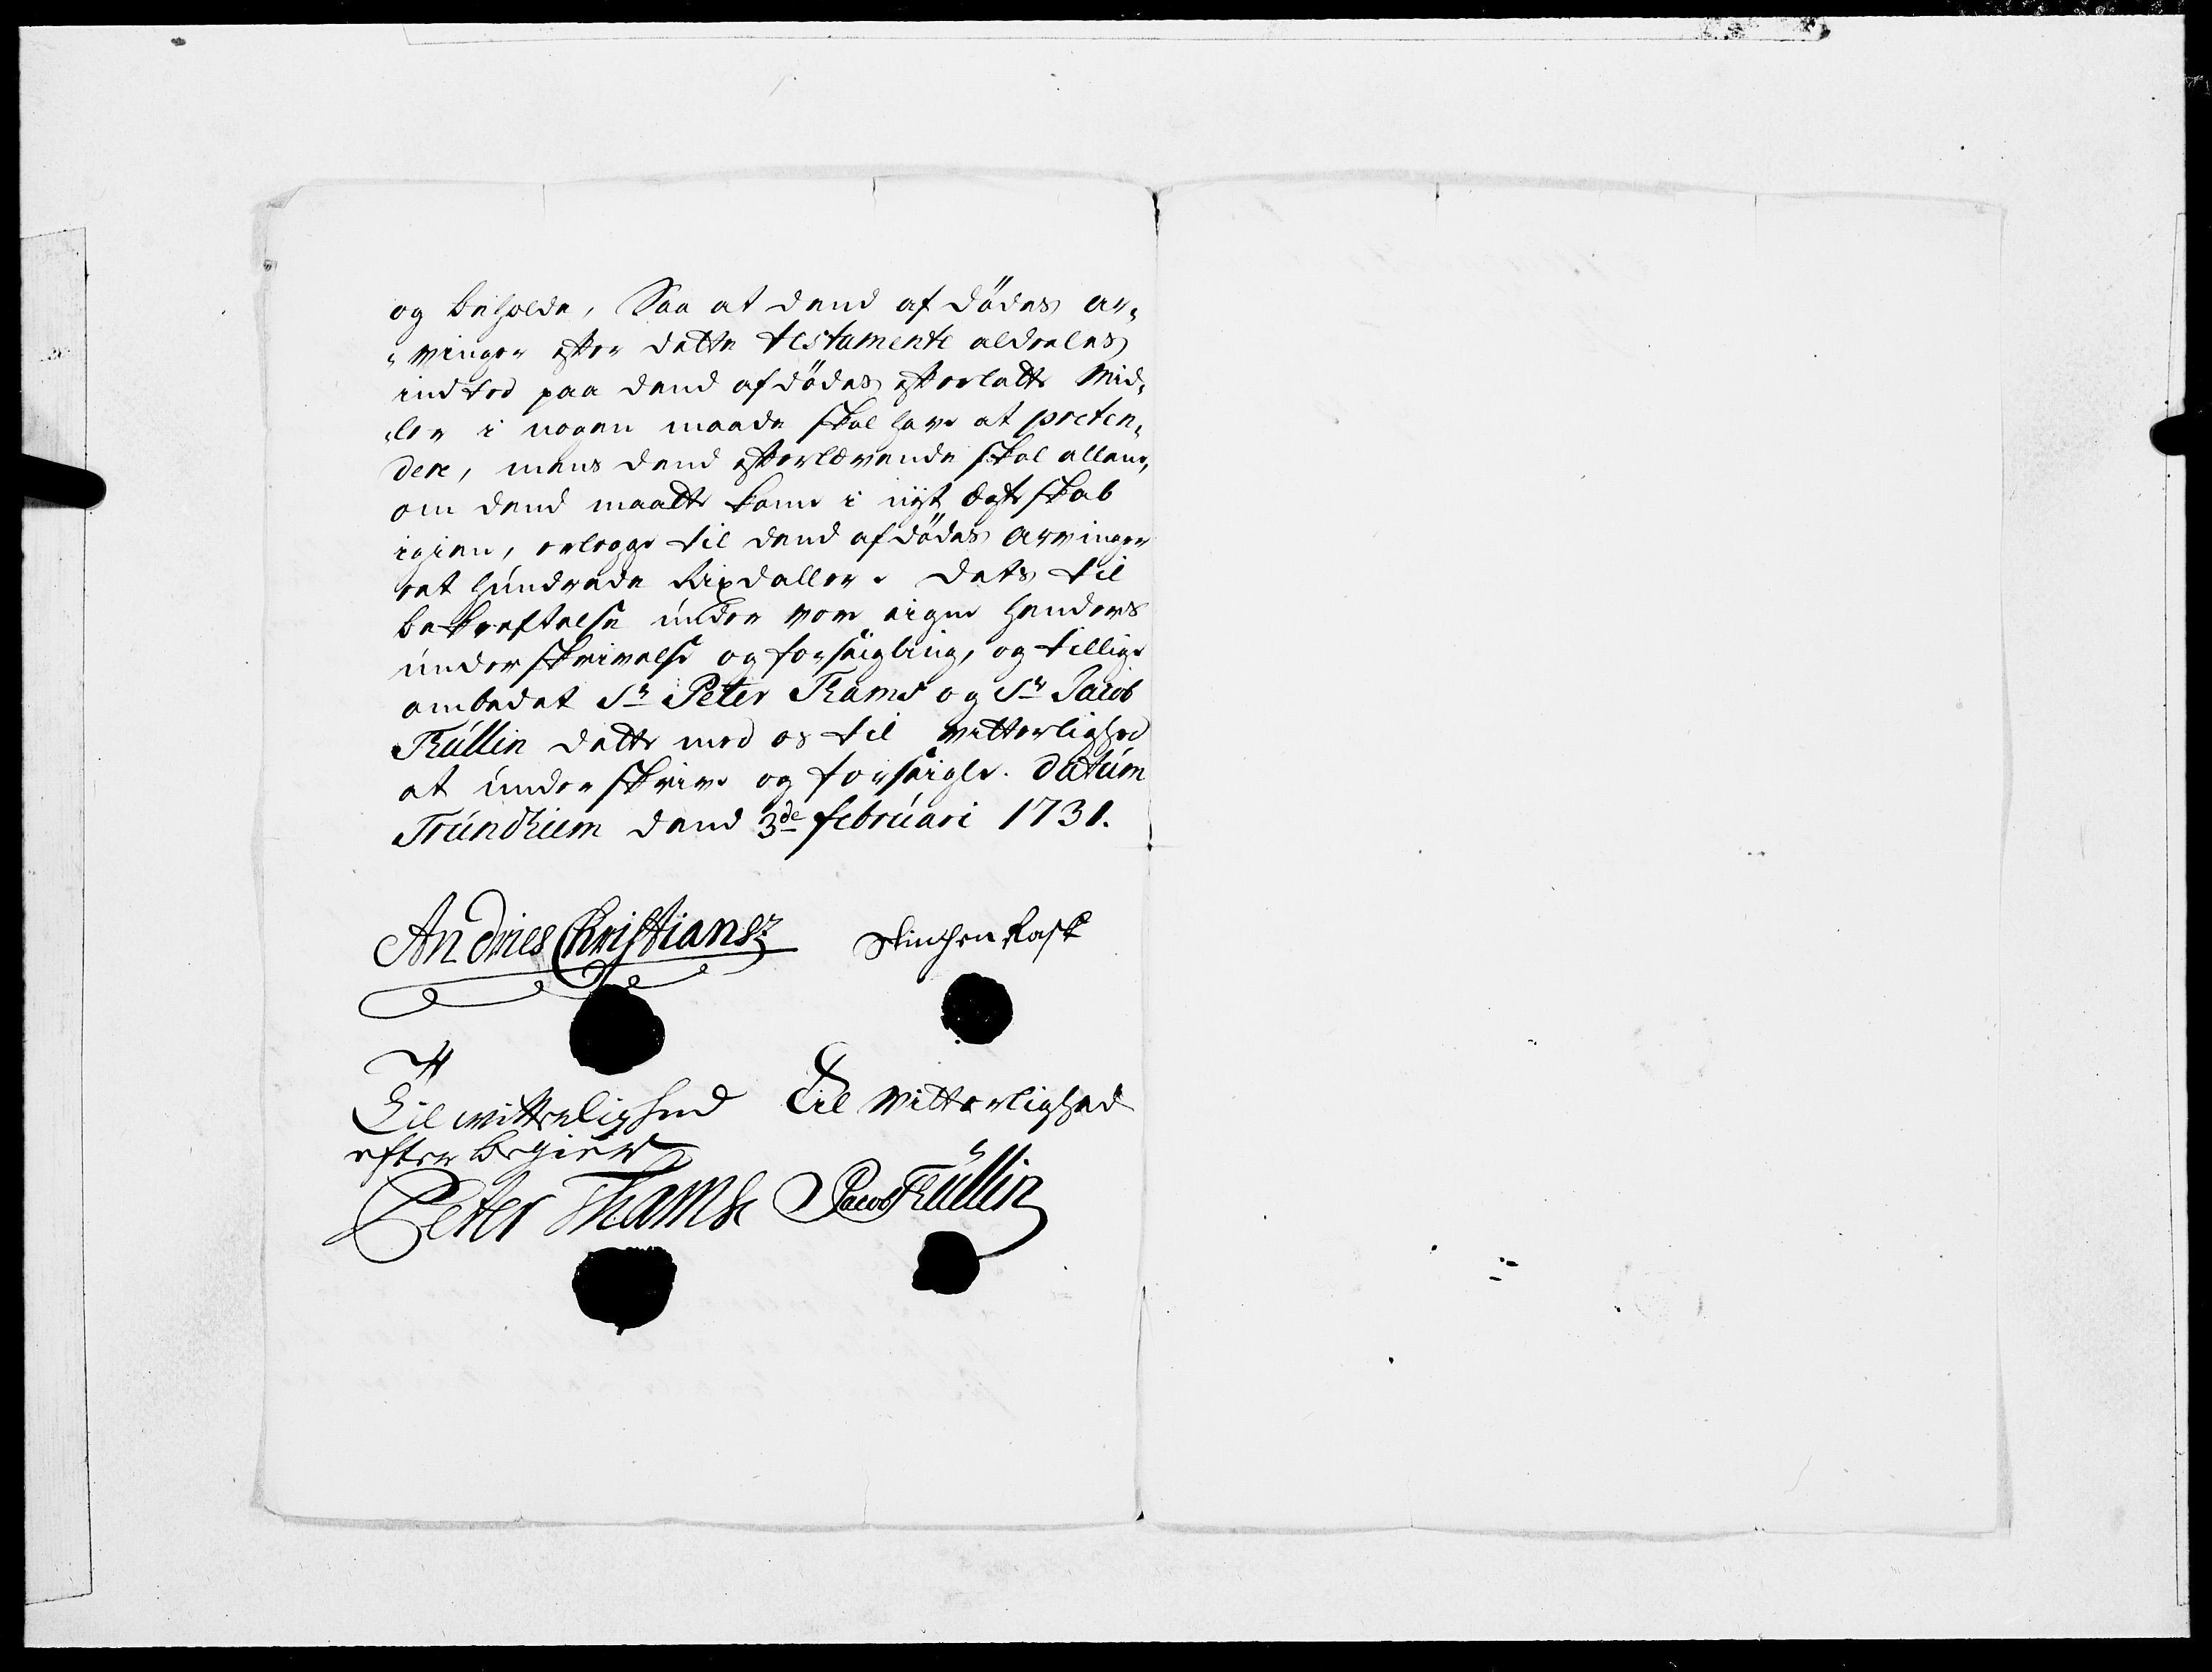 og beholde, Saa at dend afdödes ar„
„vinger efter dette testamente aldeeles
inted paa dend afdödes efterlatte Mid„
„ler i nogen maade skal have at preten„
dere, mens dend efterlevende skal allene,
om dend maatte kome i nyt Egteskab
igien, erlegge til dend afdödes arvinger
eet hundrede Rixdaller. Dets til
bekreftelse under vore eigne henders
underskrivelse og forseigling, og tillige
ombedet Sr Peter Thams og Sr Jacob
Thüllin dette med os til vitterlighed
at underskrive og forseigle. Datum
Trundhiem dend 3de februari 1731.
Andries Christiansz: Rask
Til witterlighed Til Vitterlighed
efter begier
Peter Thams Jacob Thüllin